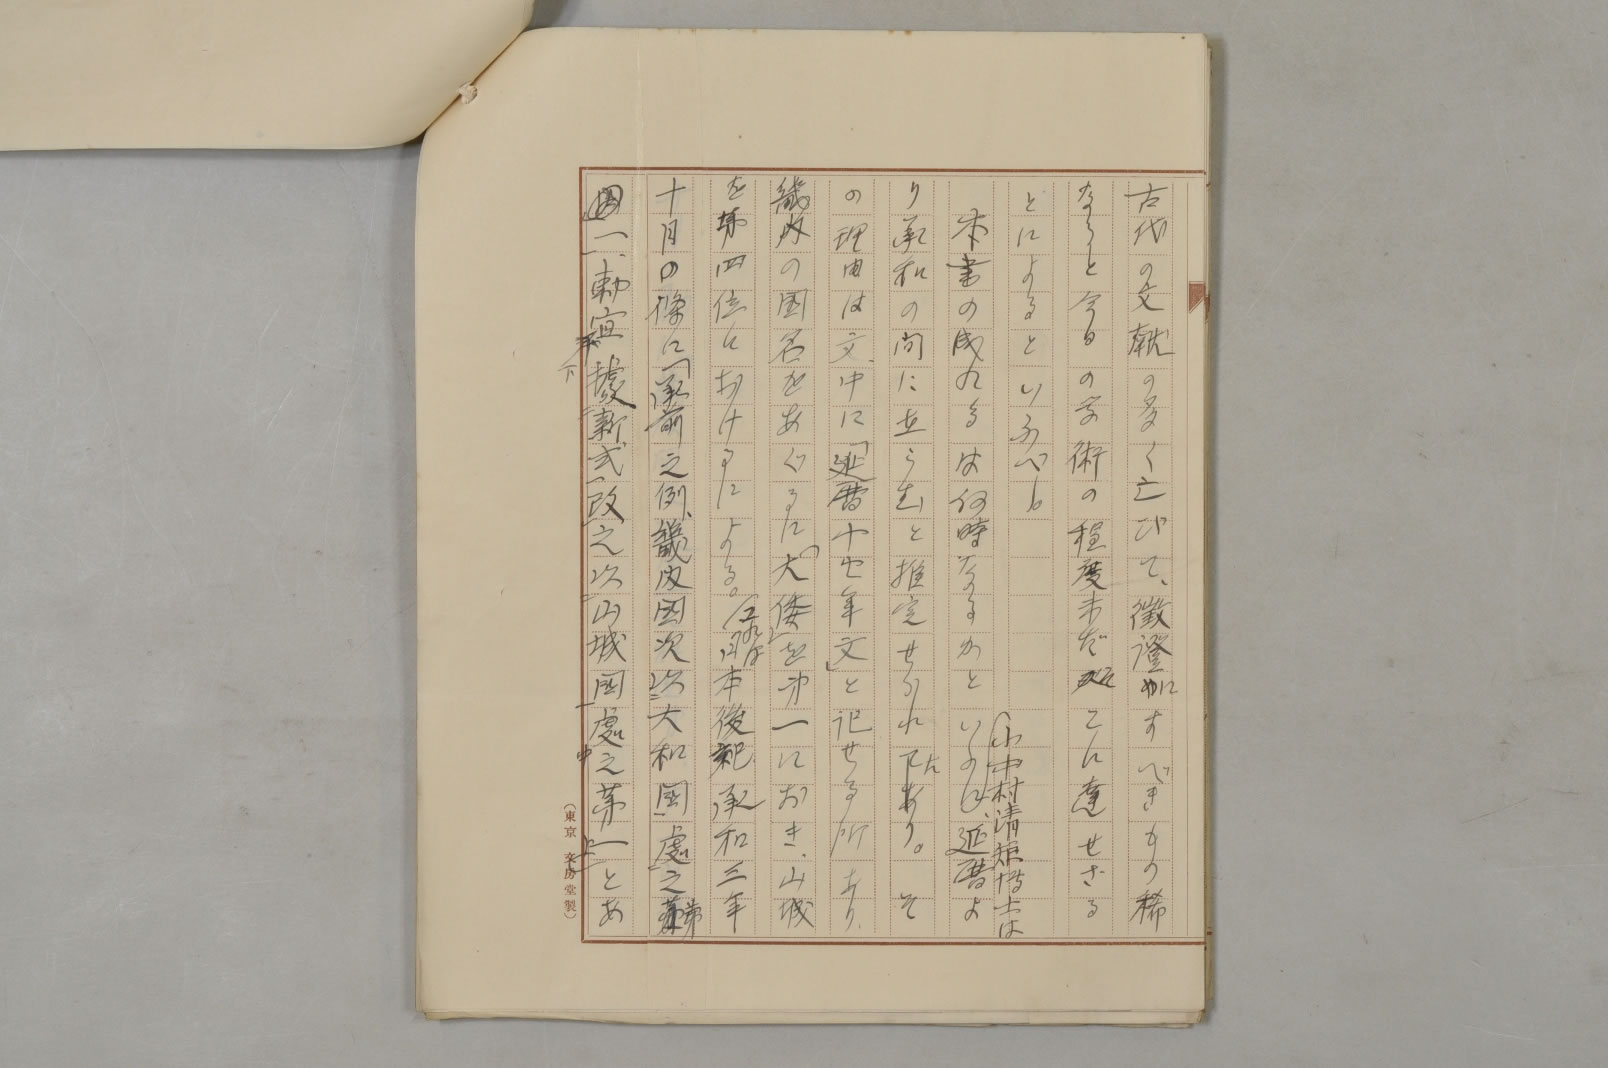 古代の文献の多く亡びて、徴證にすべきもの稀
なると今日の学術の程度未だこゝに達せざる
とによるといふべし
本書の成れるは何時なるかといふに、延暦よ
(小中村清矩博士は
り承和の間に在らむと推定せられたり。そ
の理由は文中に「延暦廿七年文」と記せる所あり、
畿内の国名をあぐるに「大倭」を第一におき、山城
を第四位におけるによる。
日本後紀承和三年
十月の條に「承前之例、畿内国次、以大和国處之第
一、勅宜據新式改之、以山城国處之第一」とあ
下
中
上
(東京 文房堂製)